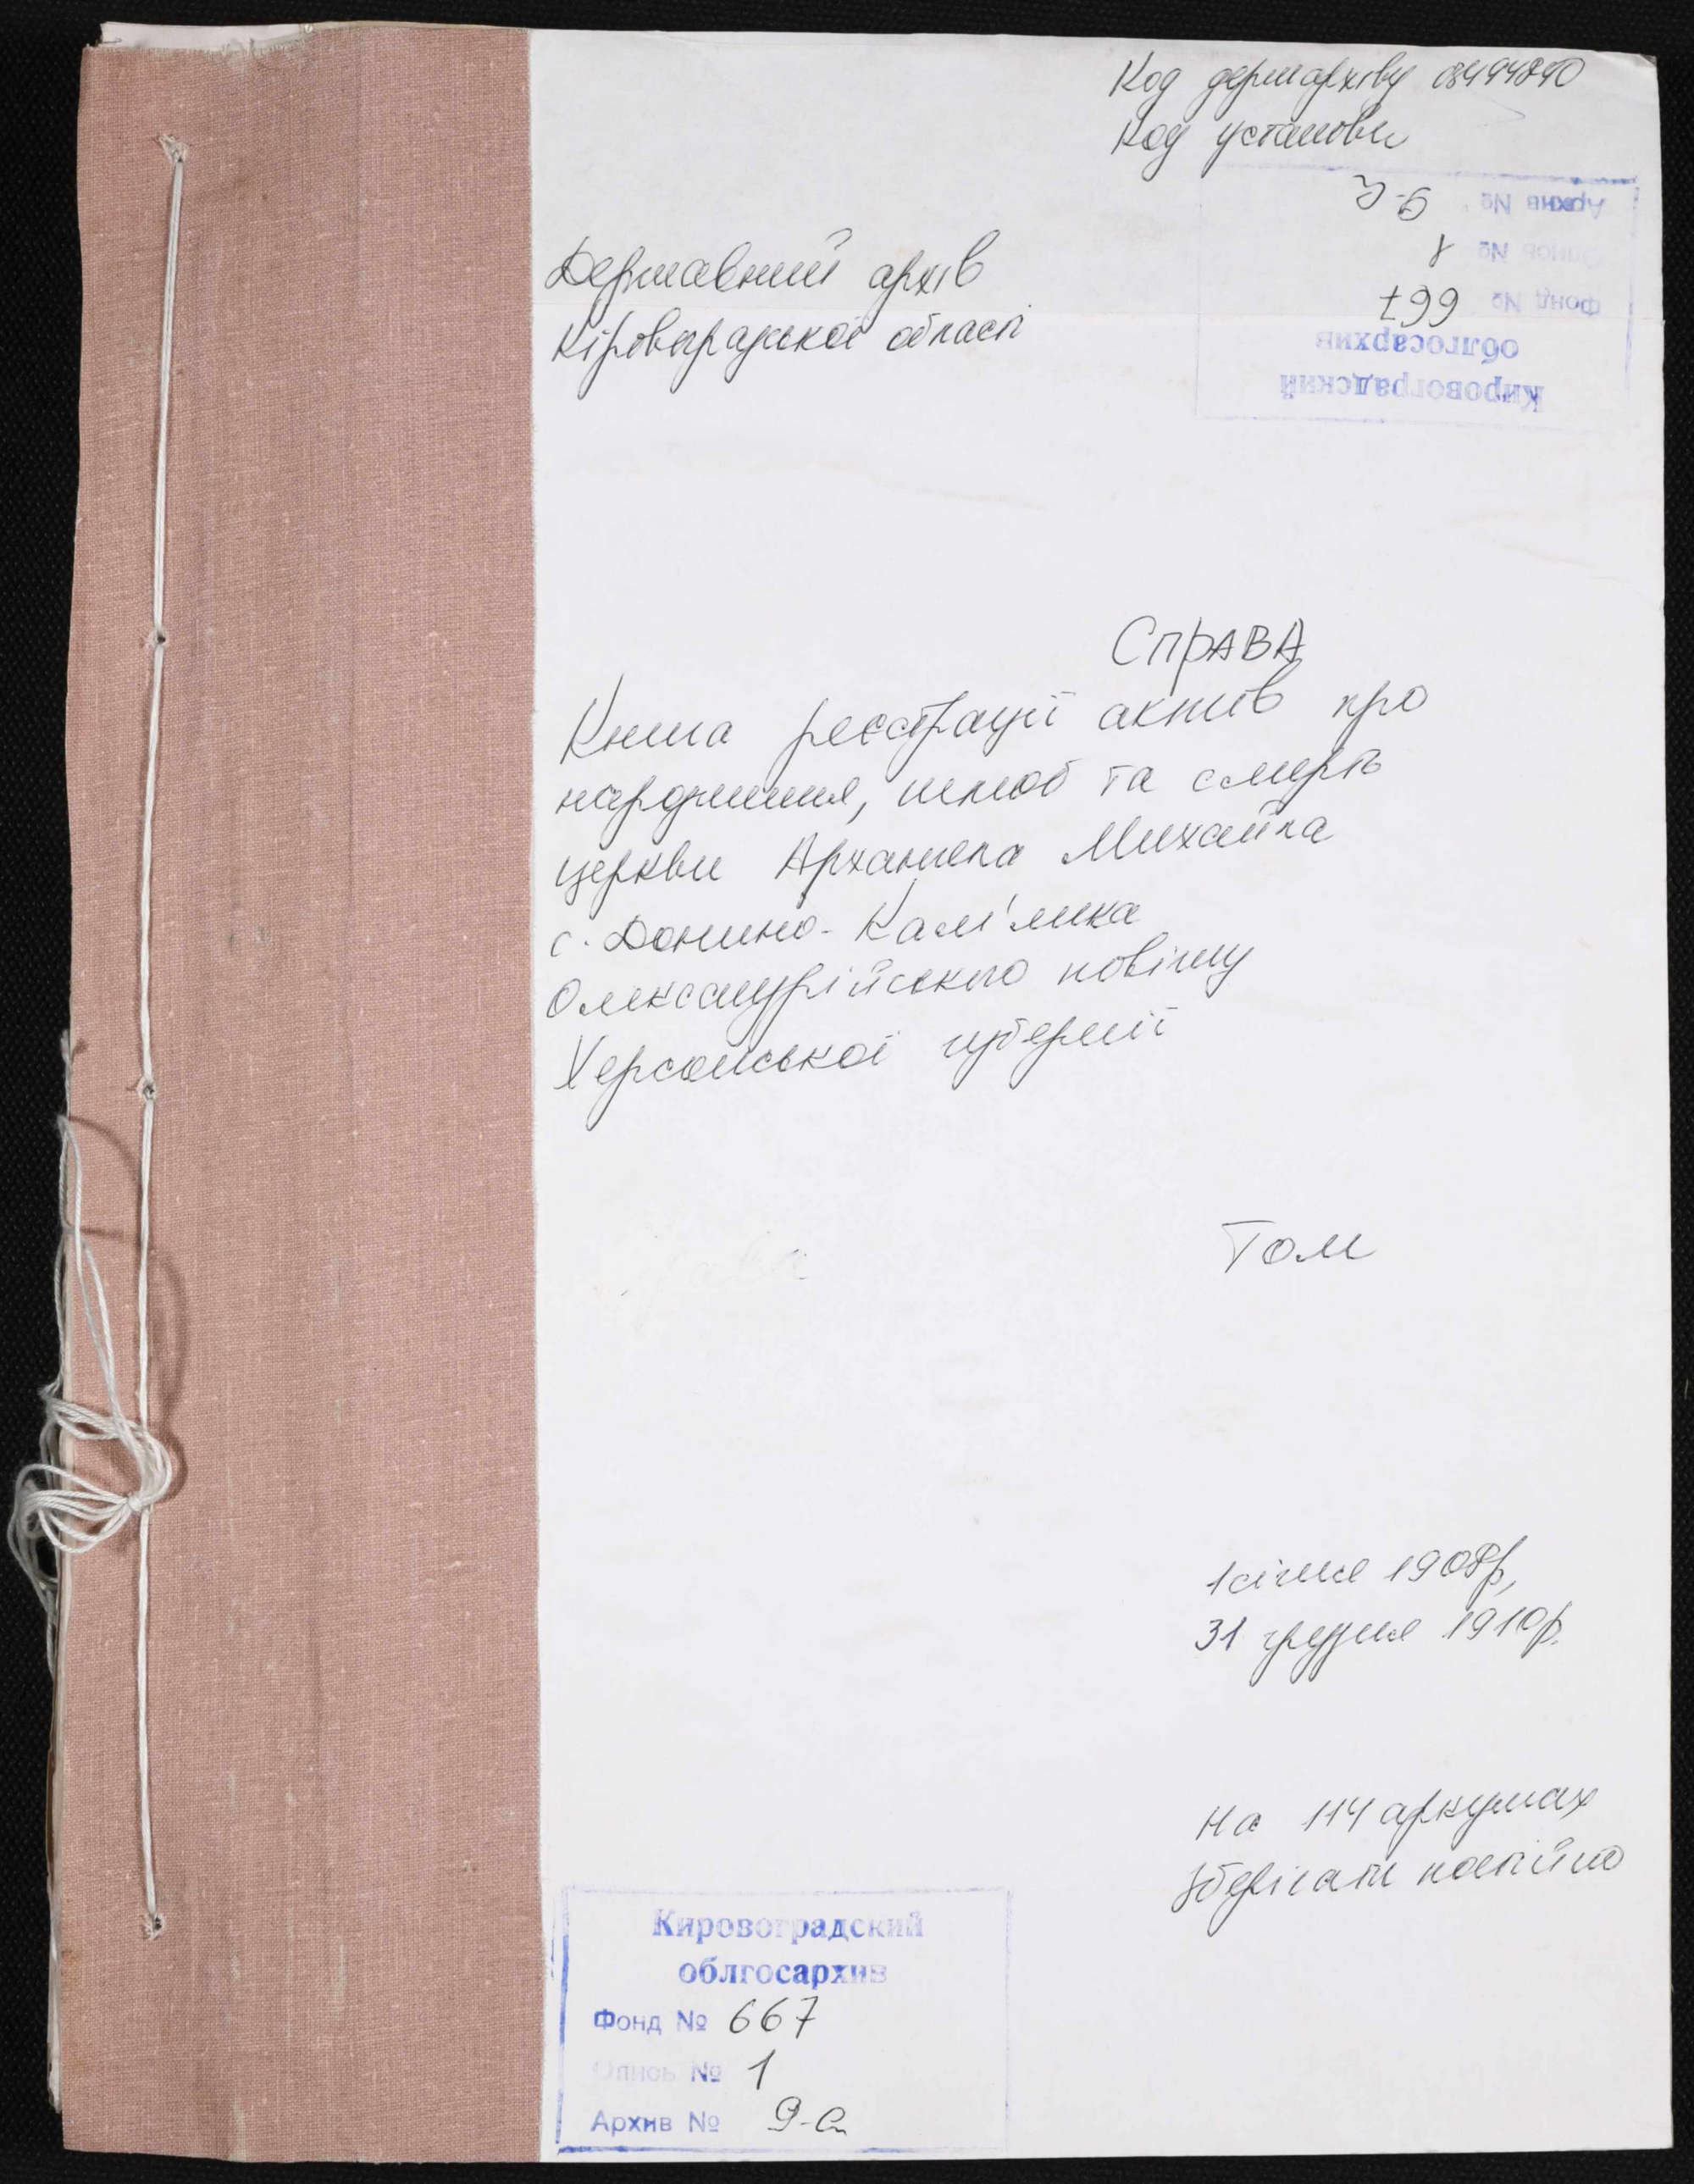 Код держархіву 03494890
Код установи
Архив № 9-а
Опись № 1
Фонд № 667
облгосархив
Кировоградский
Державний архів
Кіровоградської області
СПРАВА
Книга реєстрації актів про
народження, шлюб та смерть
церкви Архангела Михайла
с. Донино-Кам'янка
Олександрійського повіту
Херсонської губернії
Том
1 січня 1908р,
31 грудня 1910р.
На 114 аркушах
Зберігати постійно
Кировоградский
облгосархив
Фонд № 667
Опись № 1
Архив № 9-а